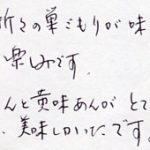 折々の巣ごもりが味
楽しみです.
んと黄味あんが とて
、美味しかったです。